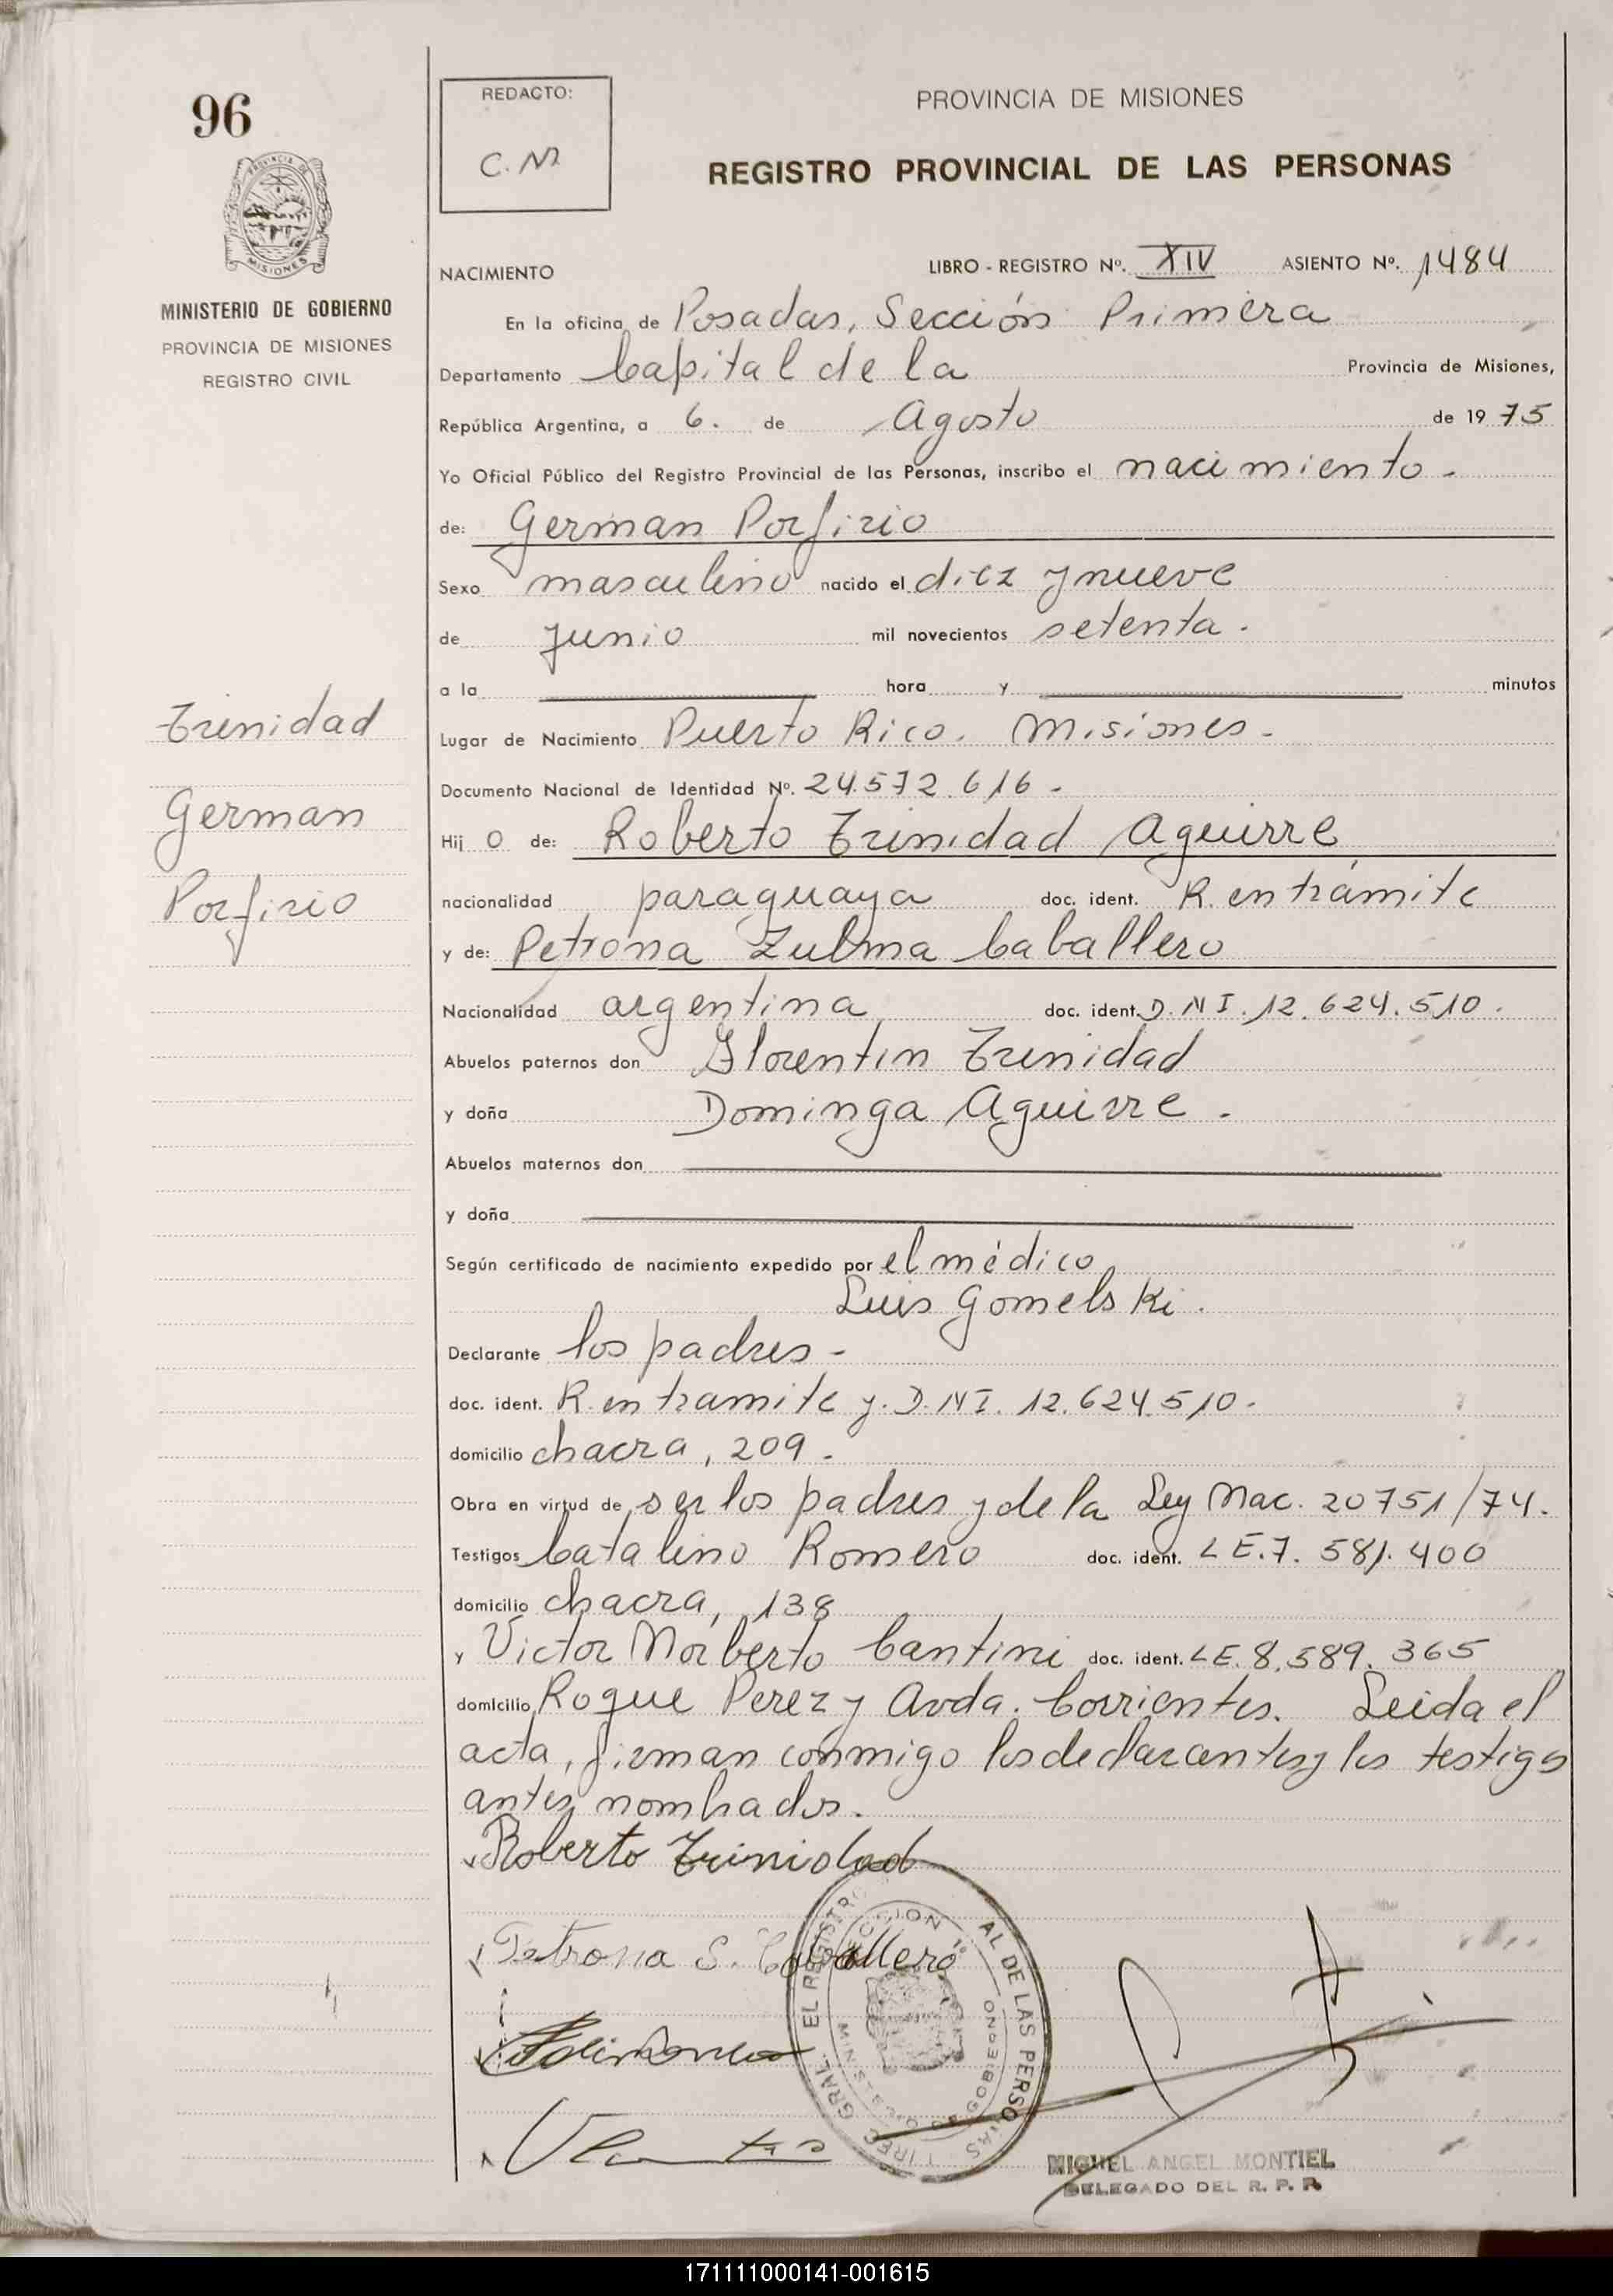 96
PROVINCIA DE
MISIONES
MINISTERIO DE GOBIERNO
PROVINCIA DE MISIONES
REGISTRO CIVIL
Trinidad
German
Porfirio
REDACTO:
C. M
PROVINCIA DE MISIONES
REGISTRO PROVINCIAL DE LAS PERSONAS
NACIMIENTO LIBRO - REGISTRO Nº. XIV ASIENTO Nº. 1484
En la oficina de Posadas, Sección Primera
Departamento Capital de la Provincia de Misiones,
República Argentina, a 6. de Agosto de 1975
Yo Oficial Público del Registro Provincial de las Personas, inscribo el nacimiento.
de: German Porfirio
Sexo masculino nacido el diez y nueve
de junio mil novecientos setenta.
a la hora y minutos
Lugar de Nacimiento Puerto Rico. Misiones.
Documento Nacional de Identidad Nº. 24.572.616.
Hij o de: Roberto Trinidad Aguirre
nacionalidad paraguaya doc. ident. R. en trámite
y de: Petrona Zulma Caballero
Nacionalidad argentina doc. ident. D.N I. 12.624.510.
Abuelos paternos don Florentin Trinidad
y doña Dominga Aguirre.
Abuelos maternos don
y doña
Según certificado de nacimiento expedido por el médico
Luis Gomelski.
Declarante los padres-
doc. ident. R. en tramite y. D.NI. 12.624.510.
domicilio chacra, 209.
Obra en virtud de ser los padres y de la Ley Nac. 20751/74.
Testigos Catalino Romero doc. ident. L E.7. 581.400
domicilio chacra, 138
y Victor Norberto Cantini doc. ident. LE. 8.589.365
domicilio Roque Perez y Avda. Corrientes. Leida el
acta, firman conmigo los declarantes y los testigos
antes nombrados.
Roberto Trinidad
Petrona S. Caballero
EL REGISTRO AL DE LAS PERSONAS
SECCION 1ª
GOBIERNO
MIGUEL ANGEL MONTIEL
DELEGADO DEL R. P. P.
171111000141-001615